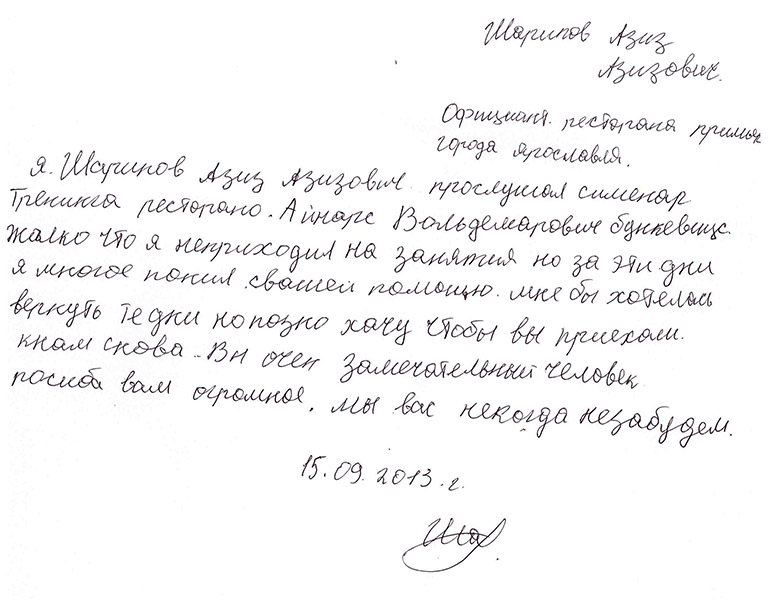 Шарипов Азиз
Азизович.
Официант. ресторана премьер
города ярославля.
я. Шарипов Азиз Азизович. прослушал сименар
Тренинга ресторано. Айнарс Вольдемарович бункевищс.
Жалко что я неприходил на занятия но за эти дни
я многое понил. свашей помощю. мне бы хотелось
вернуть те дни но позно хачу чтобы вы приехали.
кнам снова. Вы очен замечательный человек
пасиба вам огромное. мы вас некогда незабудем.
15.09.2013.г.